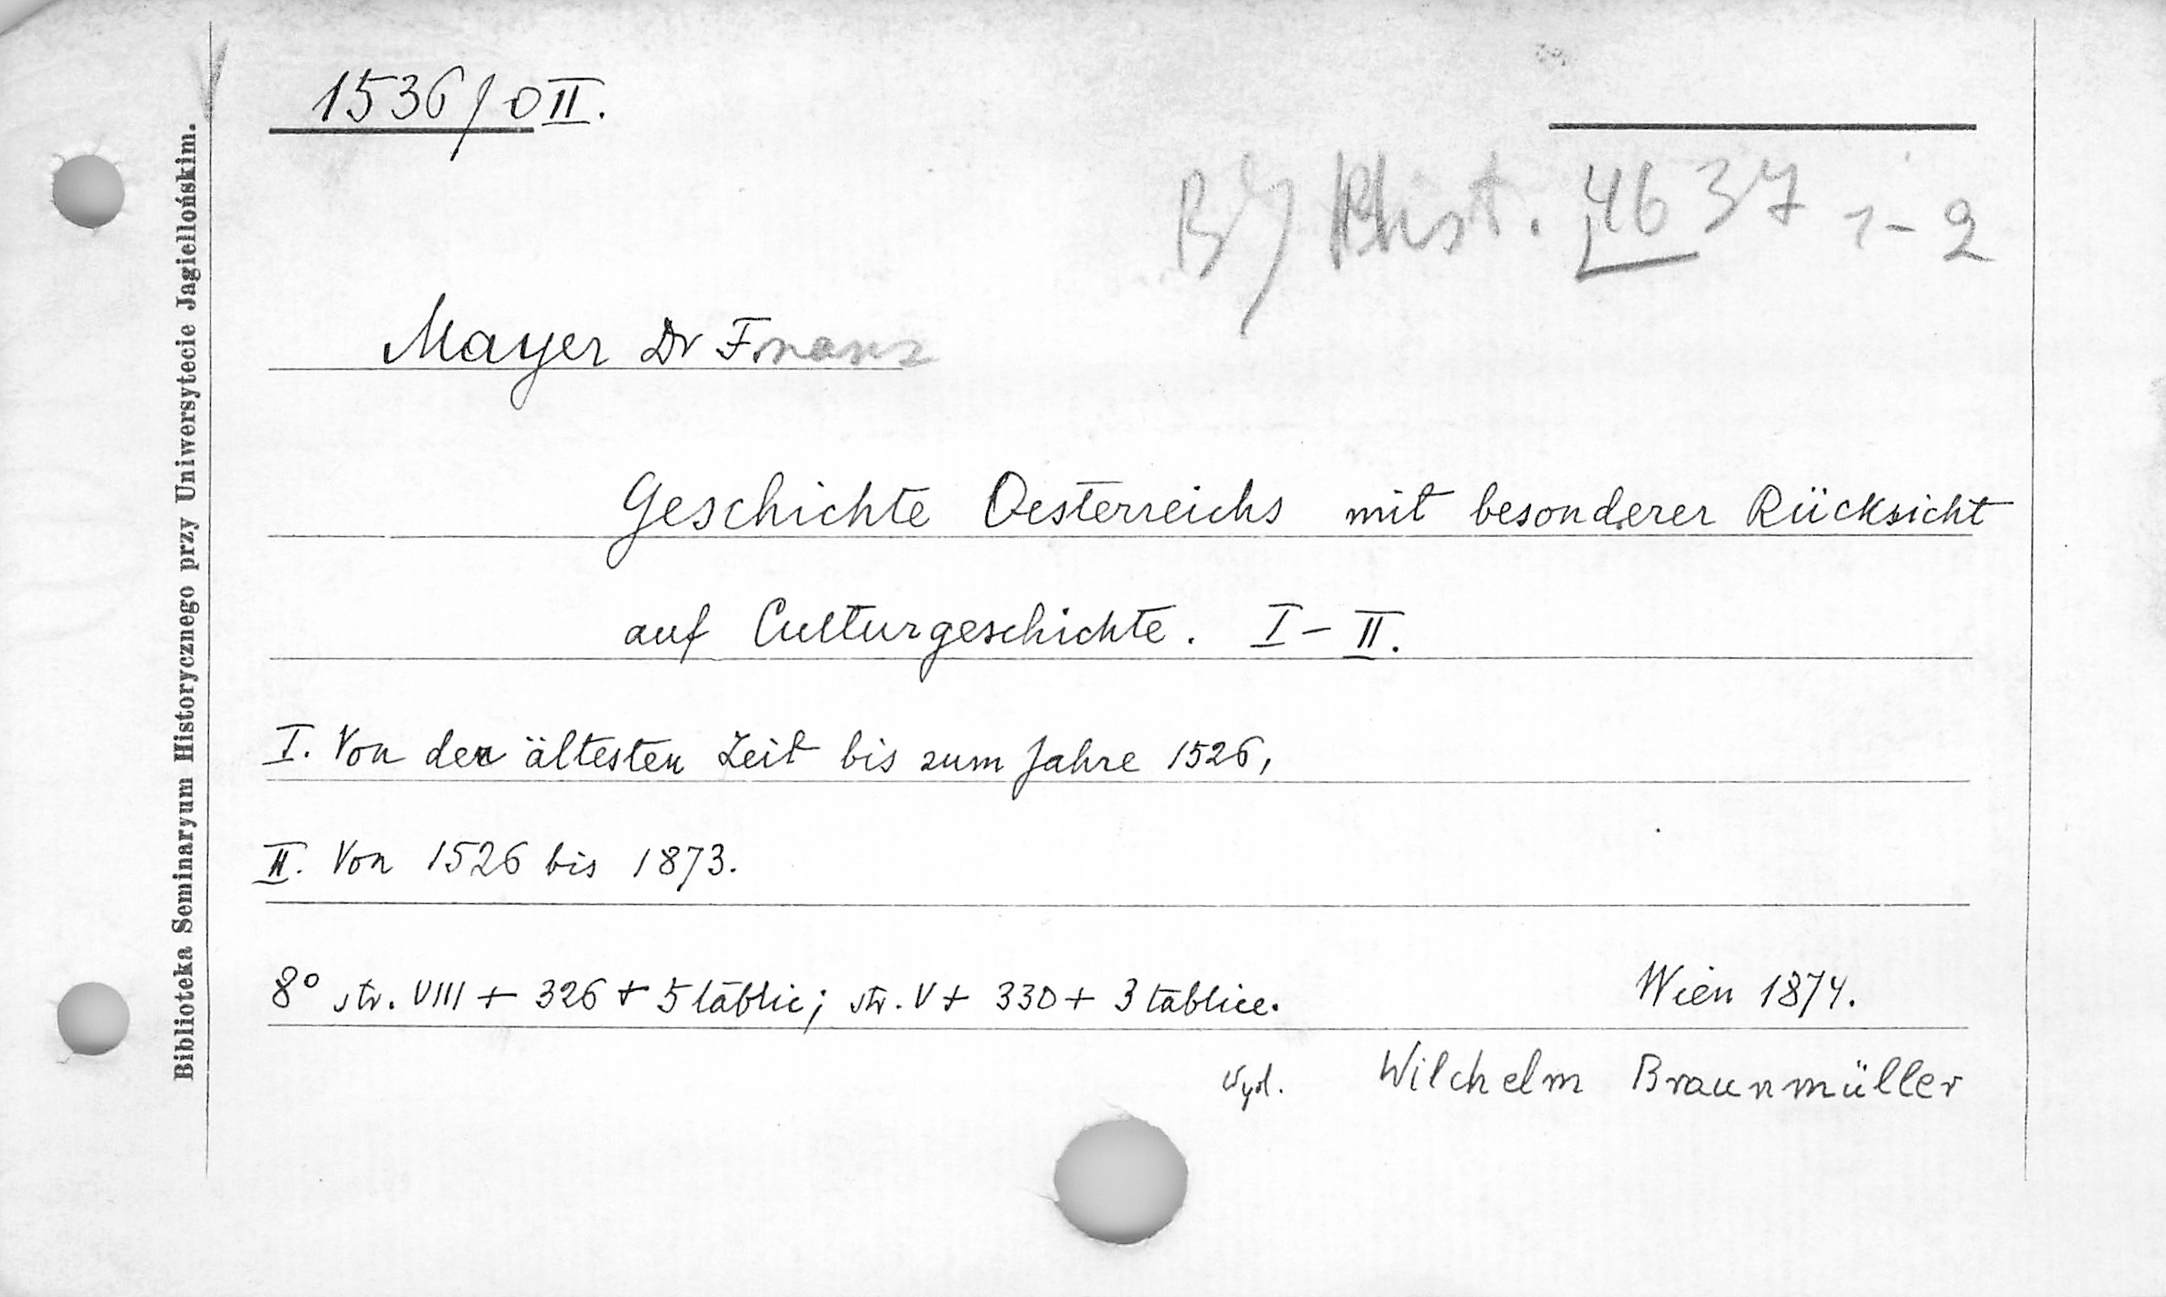 1536/O II.
BJ Hist. 4637 1-2
Mayer Dr Franz
Geschichte Oesterreichs mit besonderer Rücksicht
auf Culturgeschichte. I-II.
I. Von der ältesten Zeit bis zum Jahre 1526,
II. Von 1526 bis 1873.
8° str. VIII + 326 + 5 tablic; str. V + 330 + 3 tablice. Wien 1874.
Wyd. Wilchelm Braunmüller
Biblioteka Seminaryum Historycznego przy Uniwersytecie Jagiellońskim.